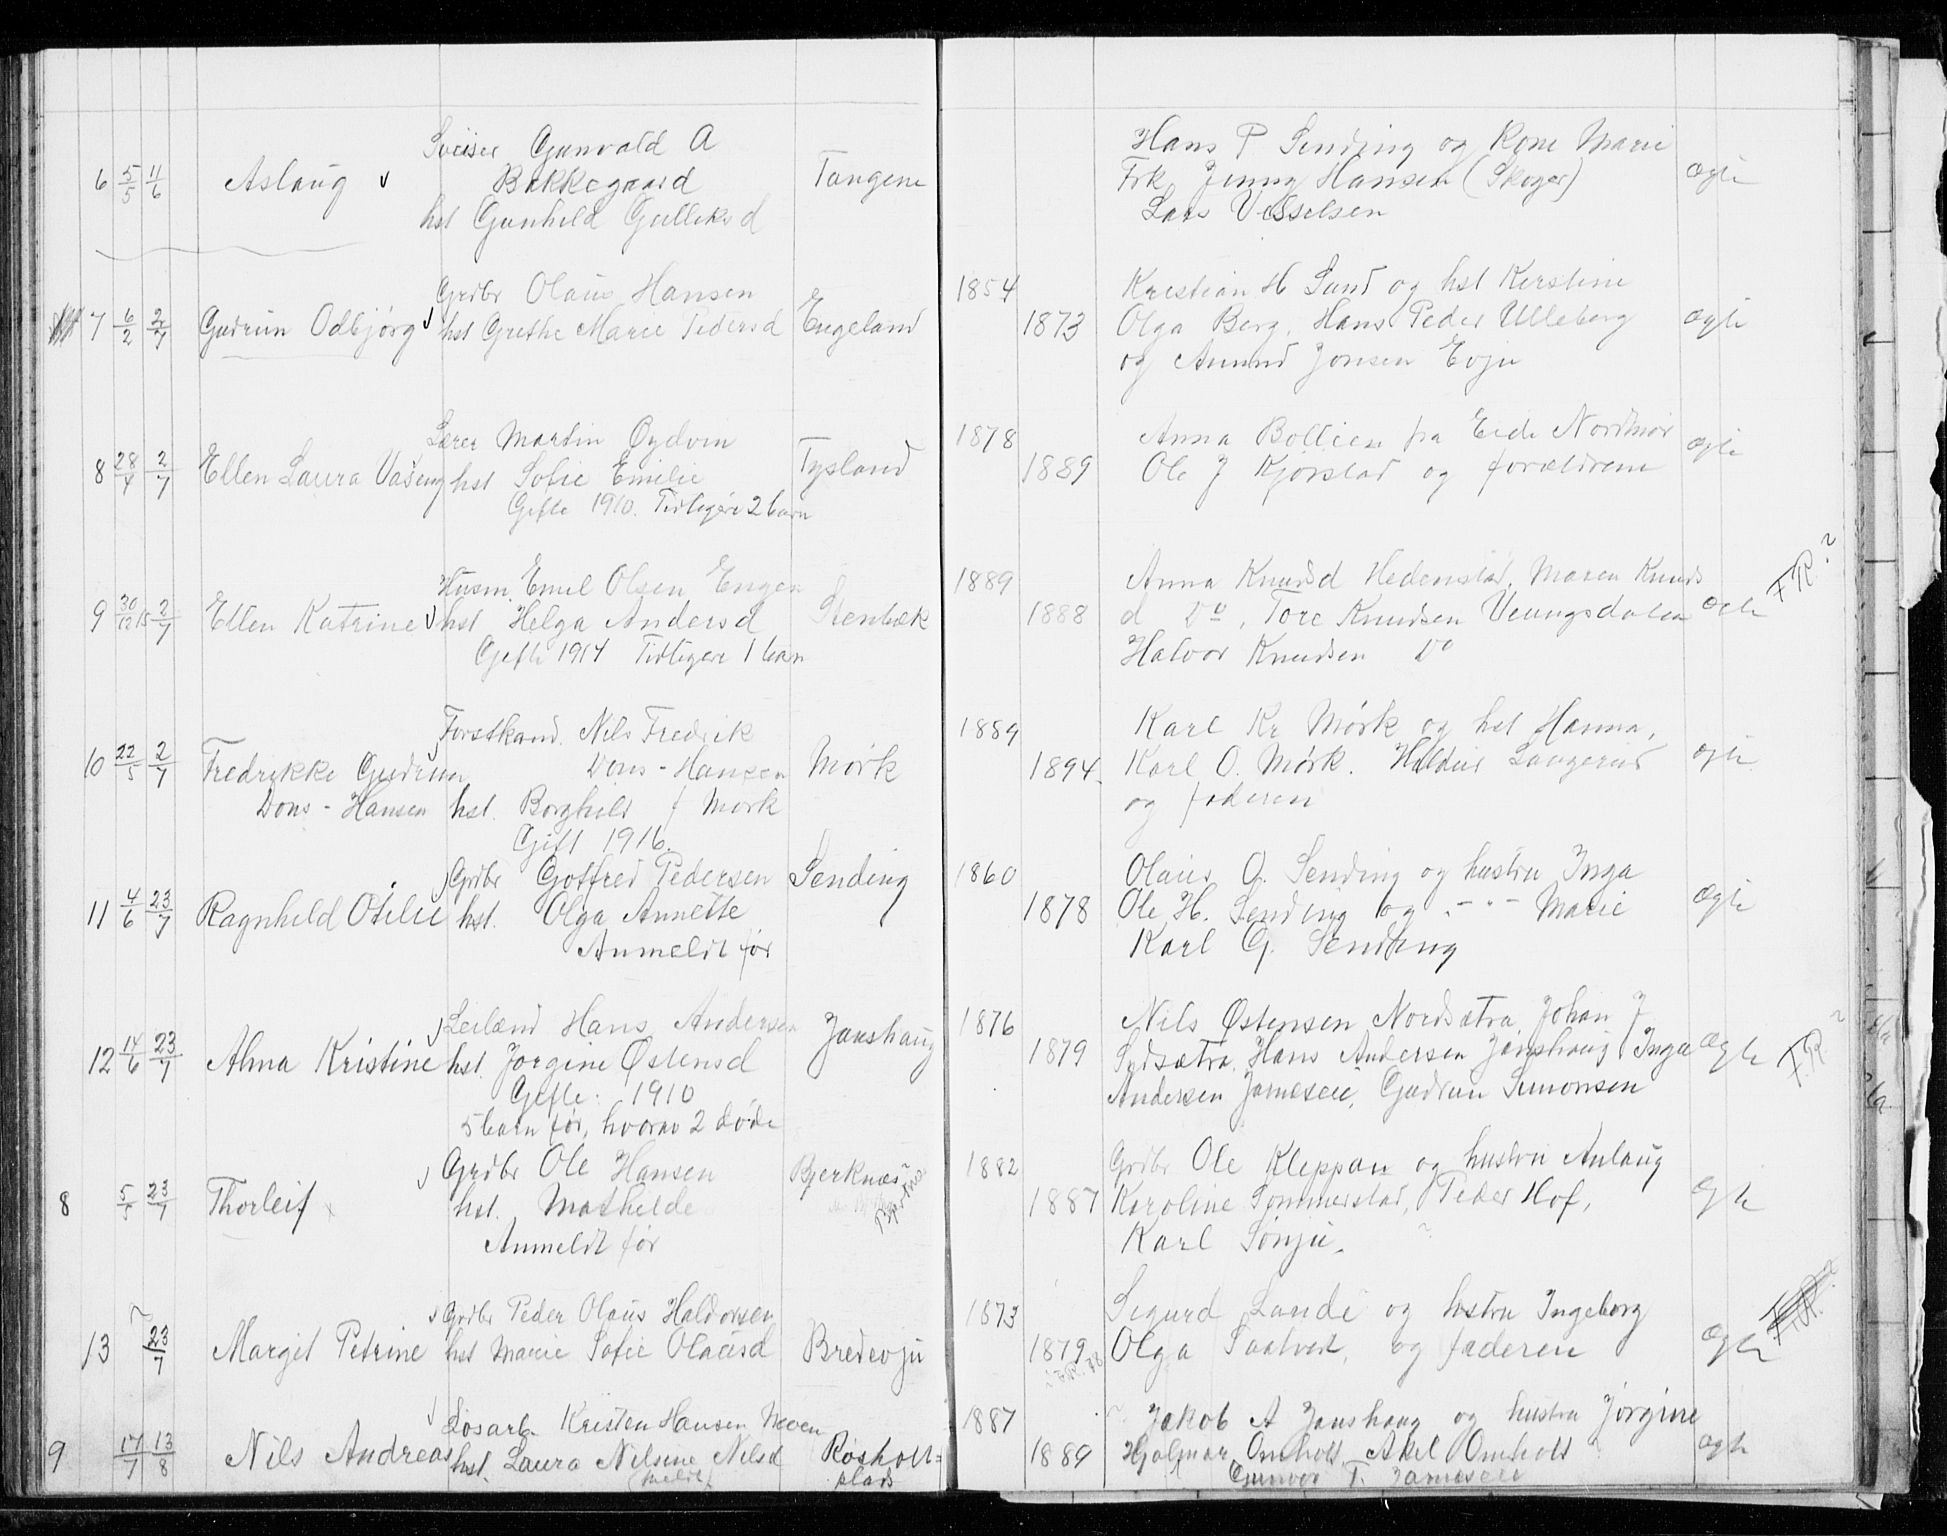 6 5/5 11/6 Aslaug Sveiser Gunvald A Tangene Hans P Sending og Kone Marie ægte
Bakkegaard Frk Jenny Hansen (Skoger)
hst Gunhild Gulliksd Lars Vesselsen
7 6/2 2/7 Gudrun Odbjørg Grdbr Olaus Hansen Engeland 1854 Kristian H Sand og hst Kirstine
hst Grethe Marie Pedersd 1873 Olga Berg, Hans Peder Ulleberg ægte
og Amund Jonsen Evju
8 28/4 2/7 Ellen Laura Vaseng Lærer Martin Øydvin Tysland 1878 Anna Bolteen fra Eide Nordmør ægte
hst Sofie Emilie 1889 Ole J Kjørstad og forældrene
Gifte 1910. Tidligere 2 barn
9 30/12 15 2/7 Ellen Katrine Husm. Emil Olsen Engen Stenbæk 1889 Anna Knudsd Hedenstad, Maren Knuds F.R?
hst Helga Andersd 1888 d Do, Tore Knudsen Veungsdalen ægte
Gifte 1914 Tidligere 1 barn Halvor Knudsen Do
10 22/5 2/7 Fredrikke Gudrun Forstkand. Nils Fredrik Mørk 1889 Karl Kr Mørk og hst Hanna,
Dons-Hansen Dons-Hansen 1894 Karl O. Mørk. Haldur Laugerud ægte
hst. Borghild f Mørk og faderen
Gift 1916.
11 4/6 23/7 Ragnhild Otilie Grdbr Gotfred Pedersen Sending 1860 Olaus O. Sending og hustru Inga
hst. Olga Annette 1878 Ole H. Sending og -"- Marie ægte
Anmeldt før Karl G. Sending
12 14/6 23/7 Alma Kristine Leilænd Hans Andersen Janshaug 1876 Nils Østensen Nordsætra, Johan J
hst. Jørgine Østensd 1879 Sydsætra, Hans Andersen Janshaug, Inga ægte F.R?
Gifte: 1910 Andersen Jameseie, Gudrun Simonsen
5 barn før, hvorav 2 døde
8 5/5 23/7 Thorleif Grdbr Ole Hansen Bjerknæs 1882 Grdbr Ole Kleppan og hustru Anlaug
hst. Mathilde 1887 Karoline Sommerstad, Peder Hof, ægte
Anmeldt før Karl Sønju.
13 23/7 Margit Petrine Grdbr Peder Olaus Haldorsen Bredevju 1873 Sigurd Lande og hstru Ingeborg F.R.?
hst Marie Sofie Olausd 1879 Olga Saatvedt, og faderen ægte
9 17/7 13/8 Nils Andreas Løsarb. Kristen Hansen Moen Røsholt= 1887 Jakob A Janshaug og hustru Jørgine
hst. Laura Nilsine Nilsd plads 1889 Hjalmar Omholt, Aksel Omholt ægte
Gunvor T. Jameseie